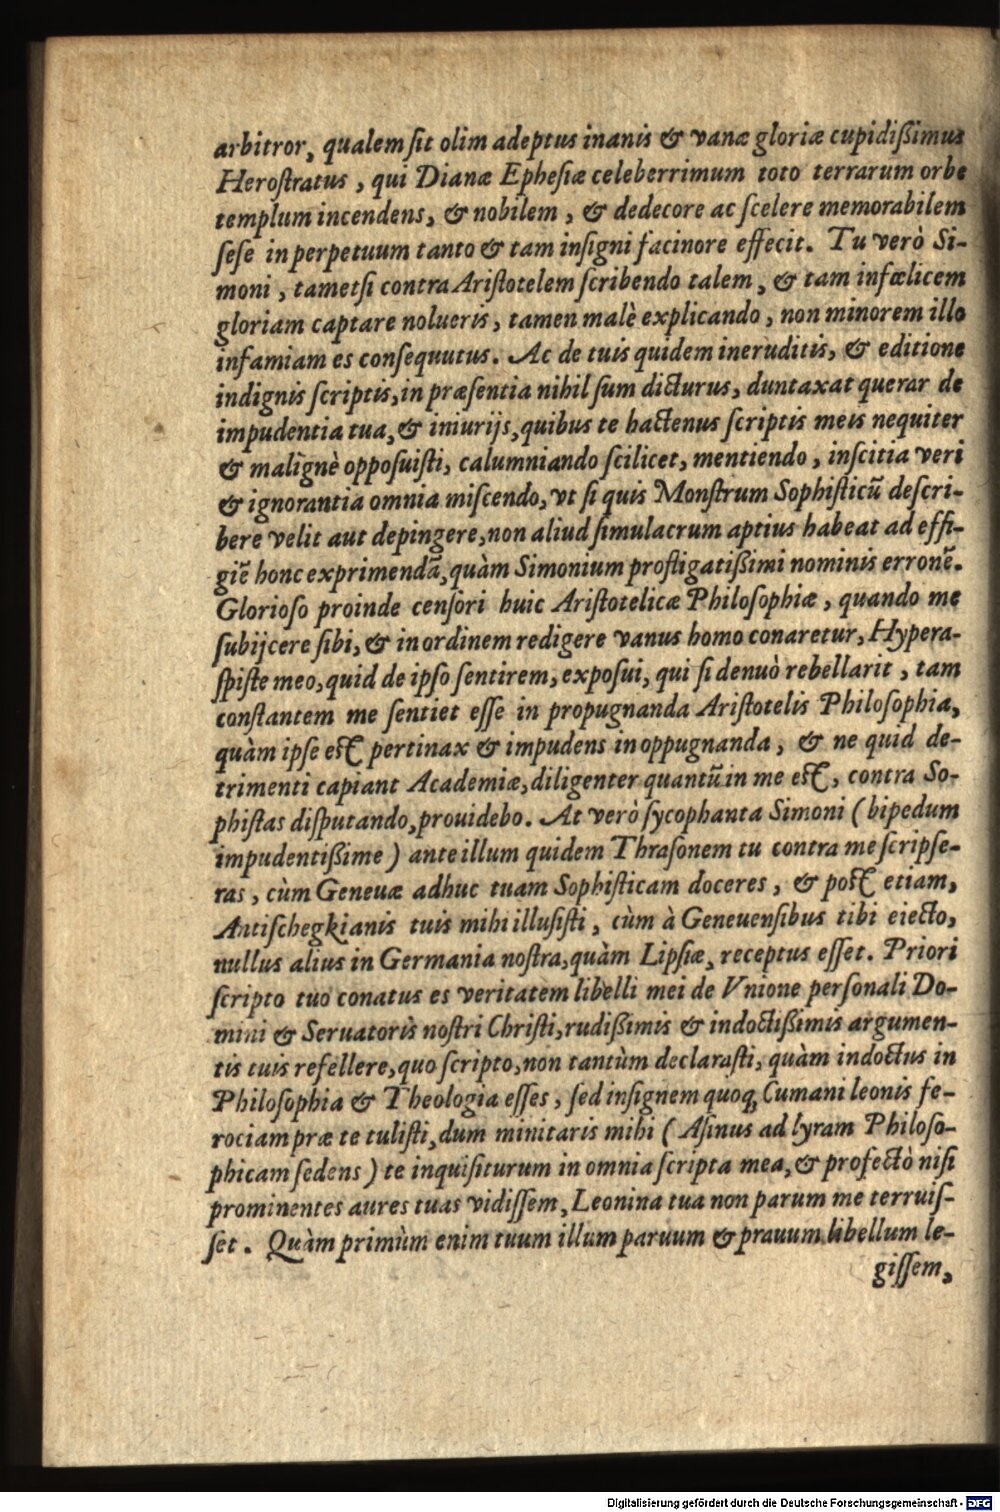 arbitror, qualem ſit olim adeptus inanis & vanæ gloriæ cupidißimus
Heroſtratus, qui Dianæ Epheſiæ celeberrimum toto terrarum orbe
templum incendens, & nobilem, & dedecore ac ſcelere memorabilem
ſeſe in perpetuum tanto & tam inſigni facinore effecit. Tu verò Si-
moni, tametſi contra Ariſtotelem ſcribendo talem, & tam infœlicem
gloriam captare nolueris, tamen malè explicando, non minorem illo
infamiam es conſequutus. Ac de tuis quidem ineruditis, & editione
indignis ſcriptis, in præſentia nihil ſum dicturus, duntaxat querar de
impudentia tua, & iniurijs, quibus te hactenus ſcriptis meis nequiter
& malignè oppoſuiſti, calumniando ſcilicet, mentiendo, inſcitia veri
& ignorantia omnia miſcendo, vt ſi quis Monſtrum Sophiſticũ deſcri-
bere velit aut depingere, non aliud ſimulacrum aptius habeat ad effi-
giẽ honc exprimendã, quàm Simonium profligatißimi nominis erronẽ.
Glorioſo proinde cenſori huic Ariſtotelicæ Philoſophiæ, quando me
ſubijcere ſibi, & in ordinem redigere vanus homo conaretur, Hypera-
ſpiſte meo, quid de ipſo ſentirem, expoſui, qui ſi denuò rebellarit, tam
conſtantem me ſentiet eſſe in propugnanda Ariſtotelis Philoſophia,
quàm ipſe eſt pertinax & impudens in oppugnanda, & ne quid de-
trimenti capiant Academiæ, diligenter quantũ in me eſt, contra So-
phiſtas diſputando, prouidebo. At verò ſycophanta Simoni (bipedum
impudentißime) ante illum quidem Thraſonem tu contra me ſcripſe-
ras, cùm Geneuæ adhuc tuam Sophiſticam doceres, & poſt etiam,
Antiſchegkianis tuis mihi illuſiſti, cùm à Geneuenſibus tibi eiecto,
nullus alius in Germania noſtra, quàm Lipſiæ, receptus eſſet. Priori
ſcripto tuo conatus es veritatem libelli mei de Vnione perſonali Do-
mini & Seruatoris noſtri Chriſti, rudißimis & indoctißimis argumen-
tis tuis refellere, quo ſcripto, non tantùm declaraſti, quàm indoctus in
Philoſophia & Theologia eſſes, ſed inſignem quoq; Cumani leonis fe-
rociam præ te tuliſti, dum minitaris mihi (Aſinus ad lyram Philoſo-
phicam ſedens) te inquiſiturum in omnia ſcripta mea, & profectò niſi
prominentes aures tuas vidiſſem, Leonina tua non parum me terruiſ-
ſet. Quàm primùm enim tuum illum paruum & prauum libellum le-
giſſem,
Digitalisierung gefördert durch die Deutsche Forschungsgemeinschaft - DFG